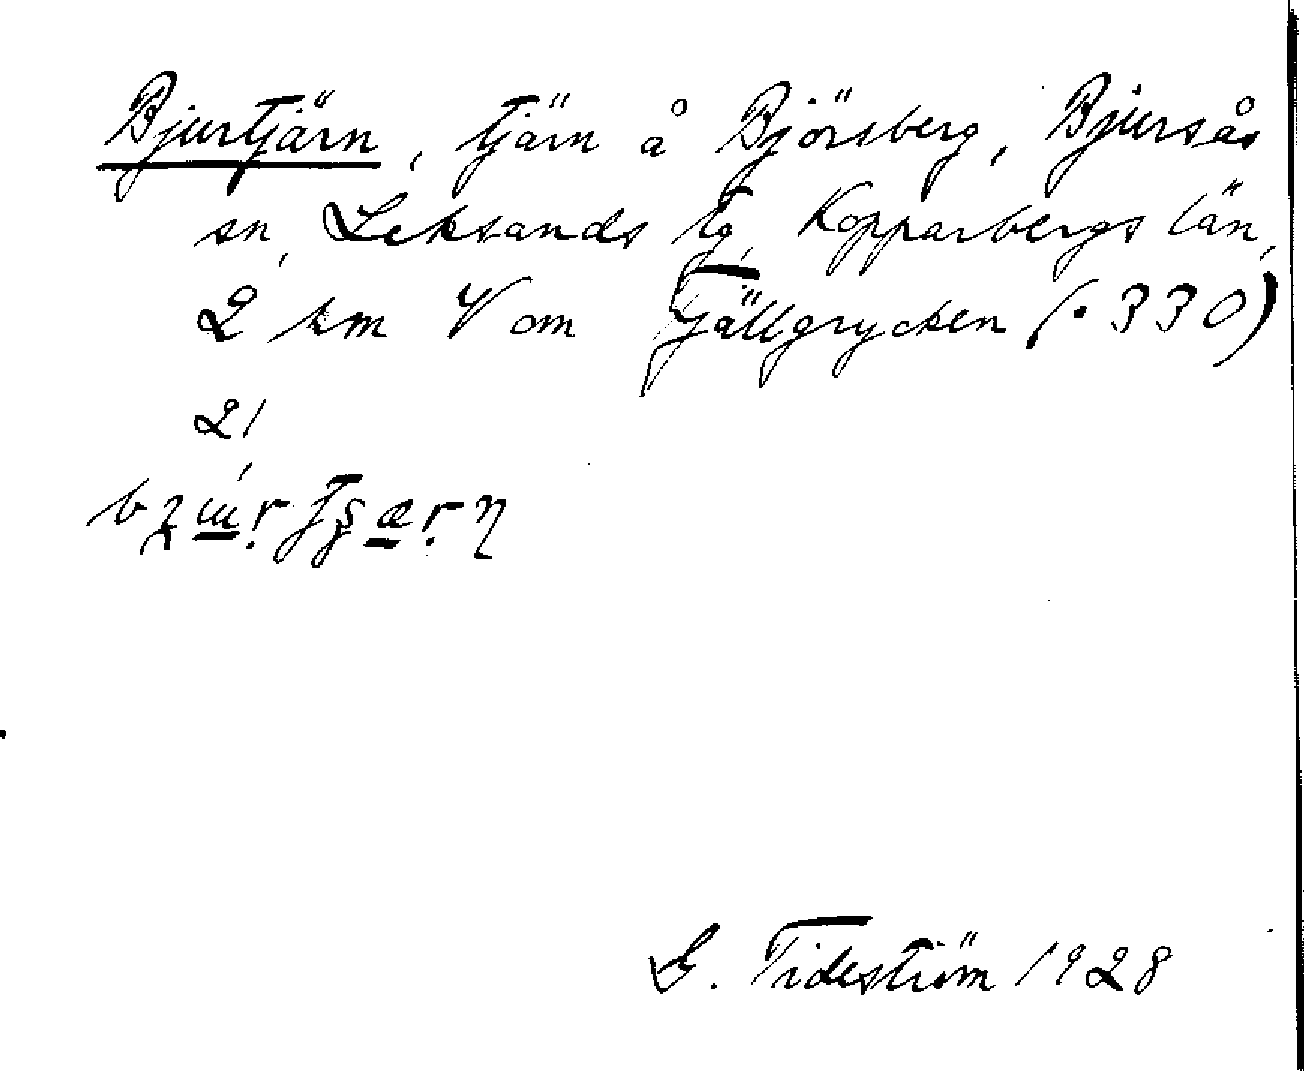 Bjurtjärn, tjärn å Björsberg, Bjursås
sn, Leksands tg, Kopparbergs län,
2 km V om Tjällgrycken (.330)
21
G. Tideström 1928